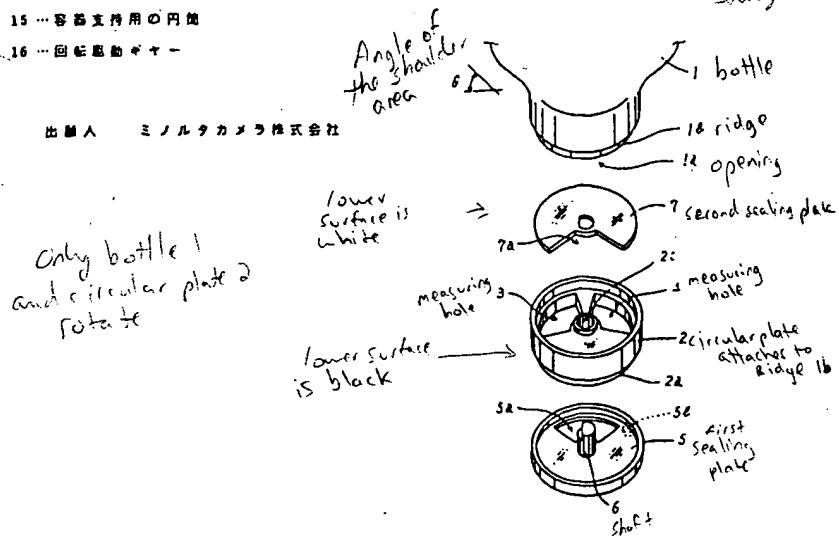 15…容器支持用の円筒
16…回転駆動ギヤー
出願人 ミノルタカメラ株式会社
Angle of
the shoulder
area
6
1 bottle
1b ridge
1a opening
lower
surface is
white
7
second sealing plate
7a
Only bottle 1
and circular plate 2
rotate
2c
measuring
hole
3
3 measuring
hole
lower surface
is black
2 circular plate
attaches to
Ridge 1b
2a
5a
5b
5 first
sealing
plate
6
shaft